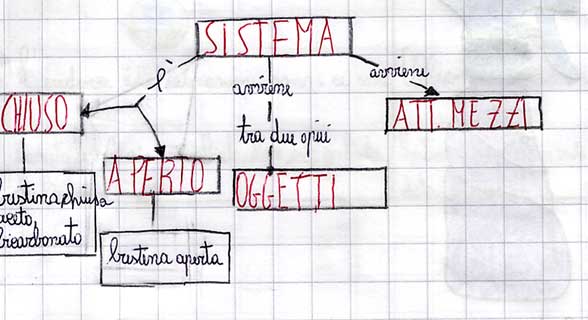 SISTEMA
è
avviene
avviene
CHIUSO
ATT. MEZZI
tra due o più
APERTO
OGGETTI
bustina chiusa
aceto,
bicarbonato
bustina aperta